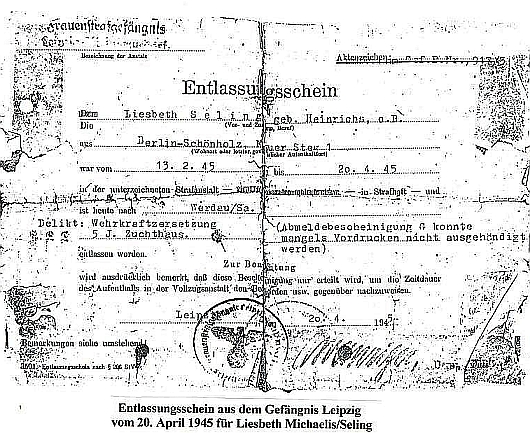 Frauenstrafgefängnis
Bezeichnung der Anstalt
Aktenzeichen:
Entlassungsschein
Dxm Liesbeth Seling geb. Heinrichs, o.B.
Die
aus Berlin-Schönholz, Steg 1
war vom 13.2.45 bis 20.4.45
in der unterzeichneten Strafanstalt — in Strafhaft — und
ist heute nach Werdau/Sa.
Delikt: Wehrkraftzersetzung
5 J. Zuchthaus.
(Abmeldebescheinigung G konnte
mangels Vordrucken nicht ausgehändigt
werden)
entlassen worden.
Zur Beachtung
wird ausdrücklich bemerkt, daß diese Bescheinigung nur erteilt wird, um die Zeitdauer
des Aufenthalts in der Vollzugsanstalt den Behörden usw. gegenüber nachzuweisen.
Leipzig 20.4. 1945
Bemerkungen siehe umstehend
Entlassungsschein aus dem Gefängnis Leipzig
vom 20. April 1945 für Liesbeth Michaelis/Seling